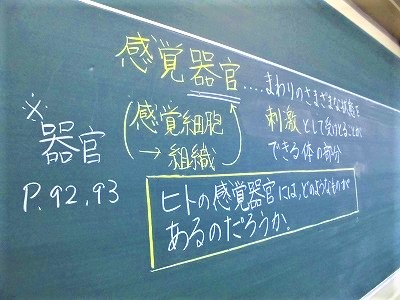 感覚器官‥‥まわりのさまざまな状態を
刺激として受けとることが
できる体の部分
(感覚細胞
→組織)
※
器官
P.92,93
ヒトの感覚器官には,どのようなものが
あるのだろうか。